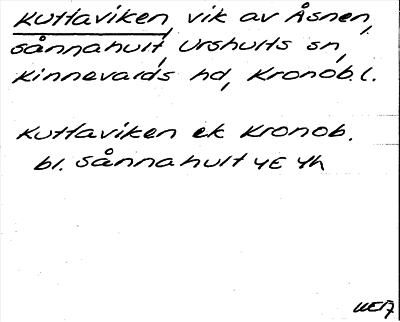 Kuttaviken, vik av Åsnen,
Sånnahult, Urshults sn,
Kinnevalds hd, Kronob.l.
Kuttaviken ek Kronob.
bl. Sånnahult 4E 4h